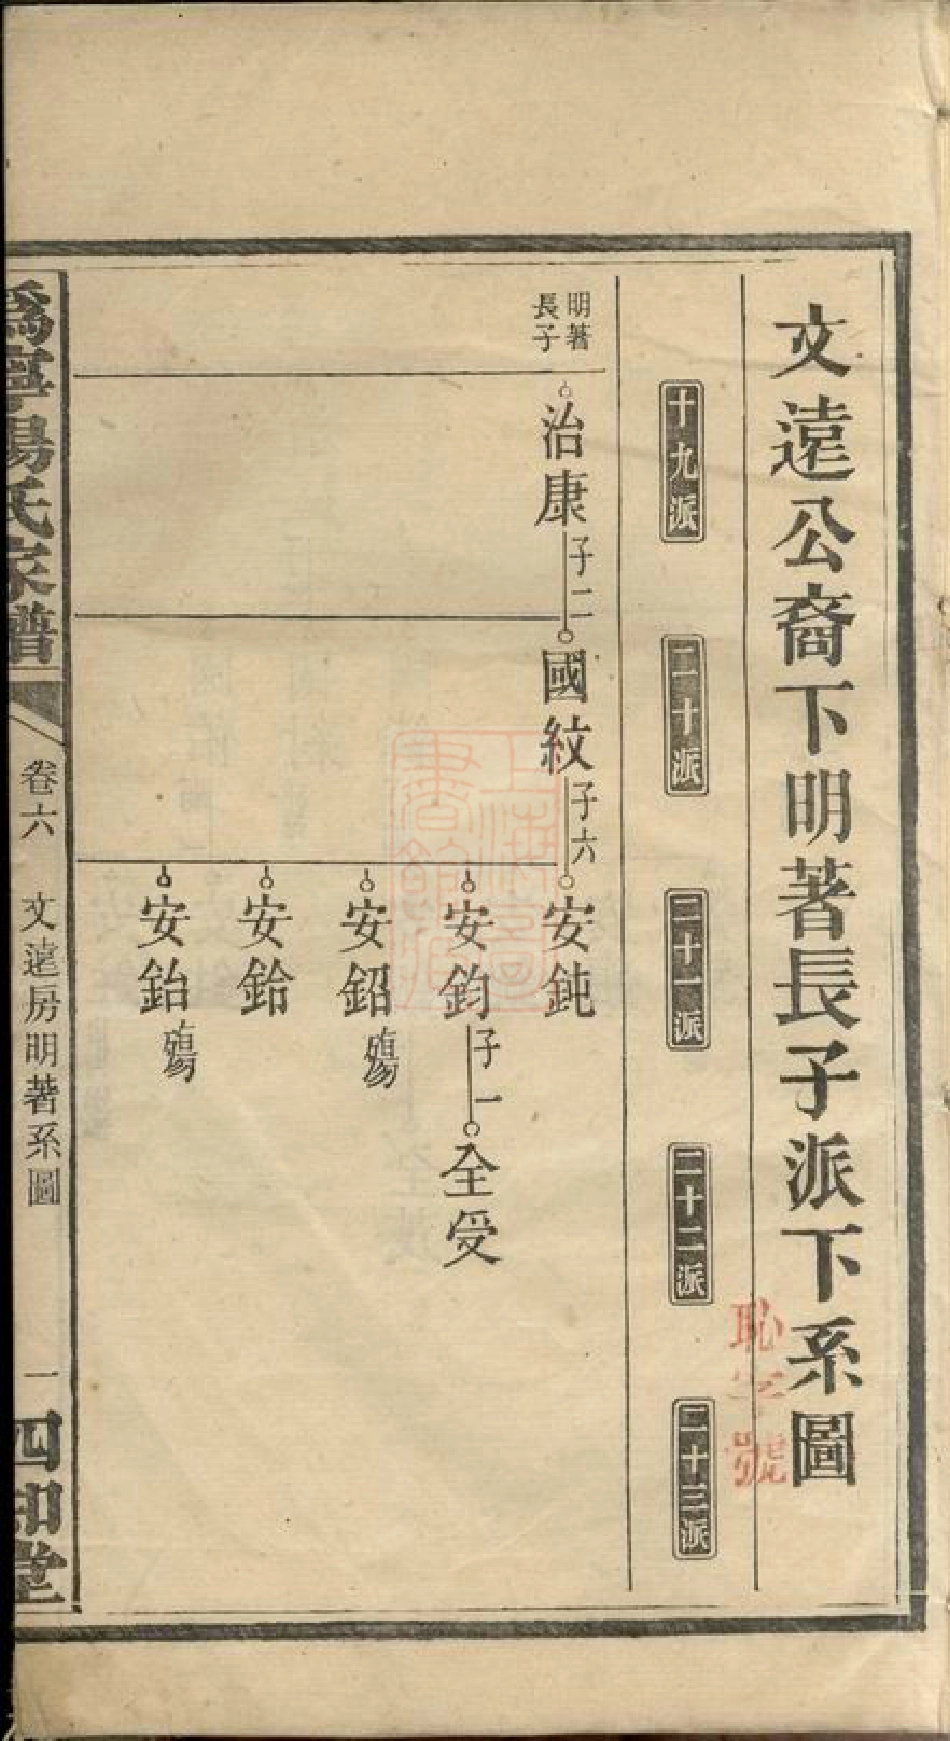 文遠公裔下明著長子派下系圖
恥字號
十九派
二十派
二十一派
二十二派
二十三派
明著
長子
治康
子二
國紋
子六
安鈍
安鈞
子一
全受
安鉊
殤
安鉿
安鈶
殤
上海圖書館藏
楊氏家譜
卷六
文遠房明著系圖
一
四知堂